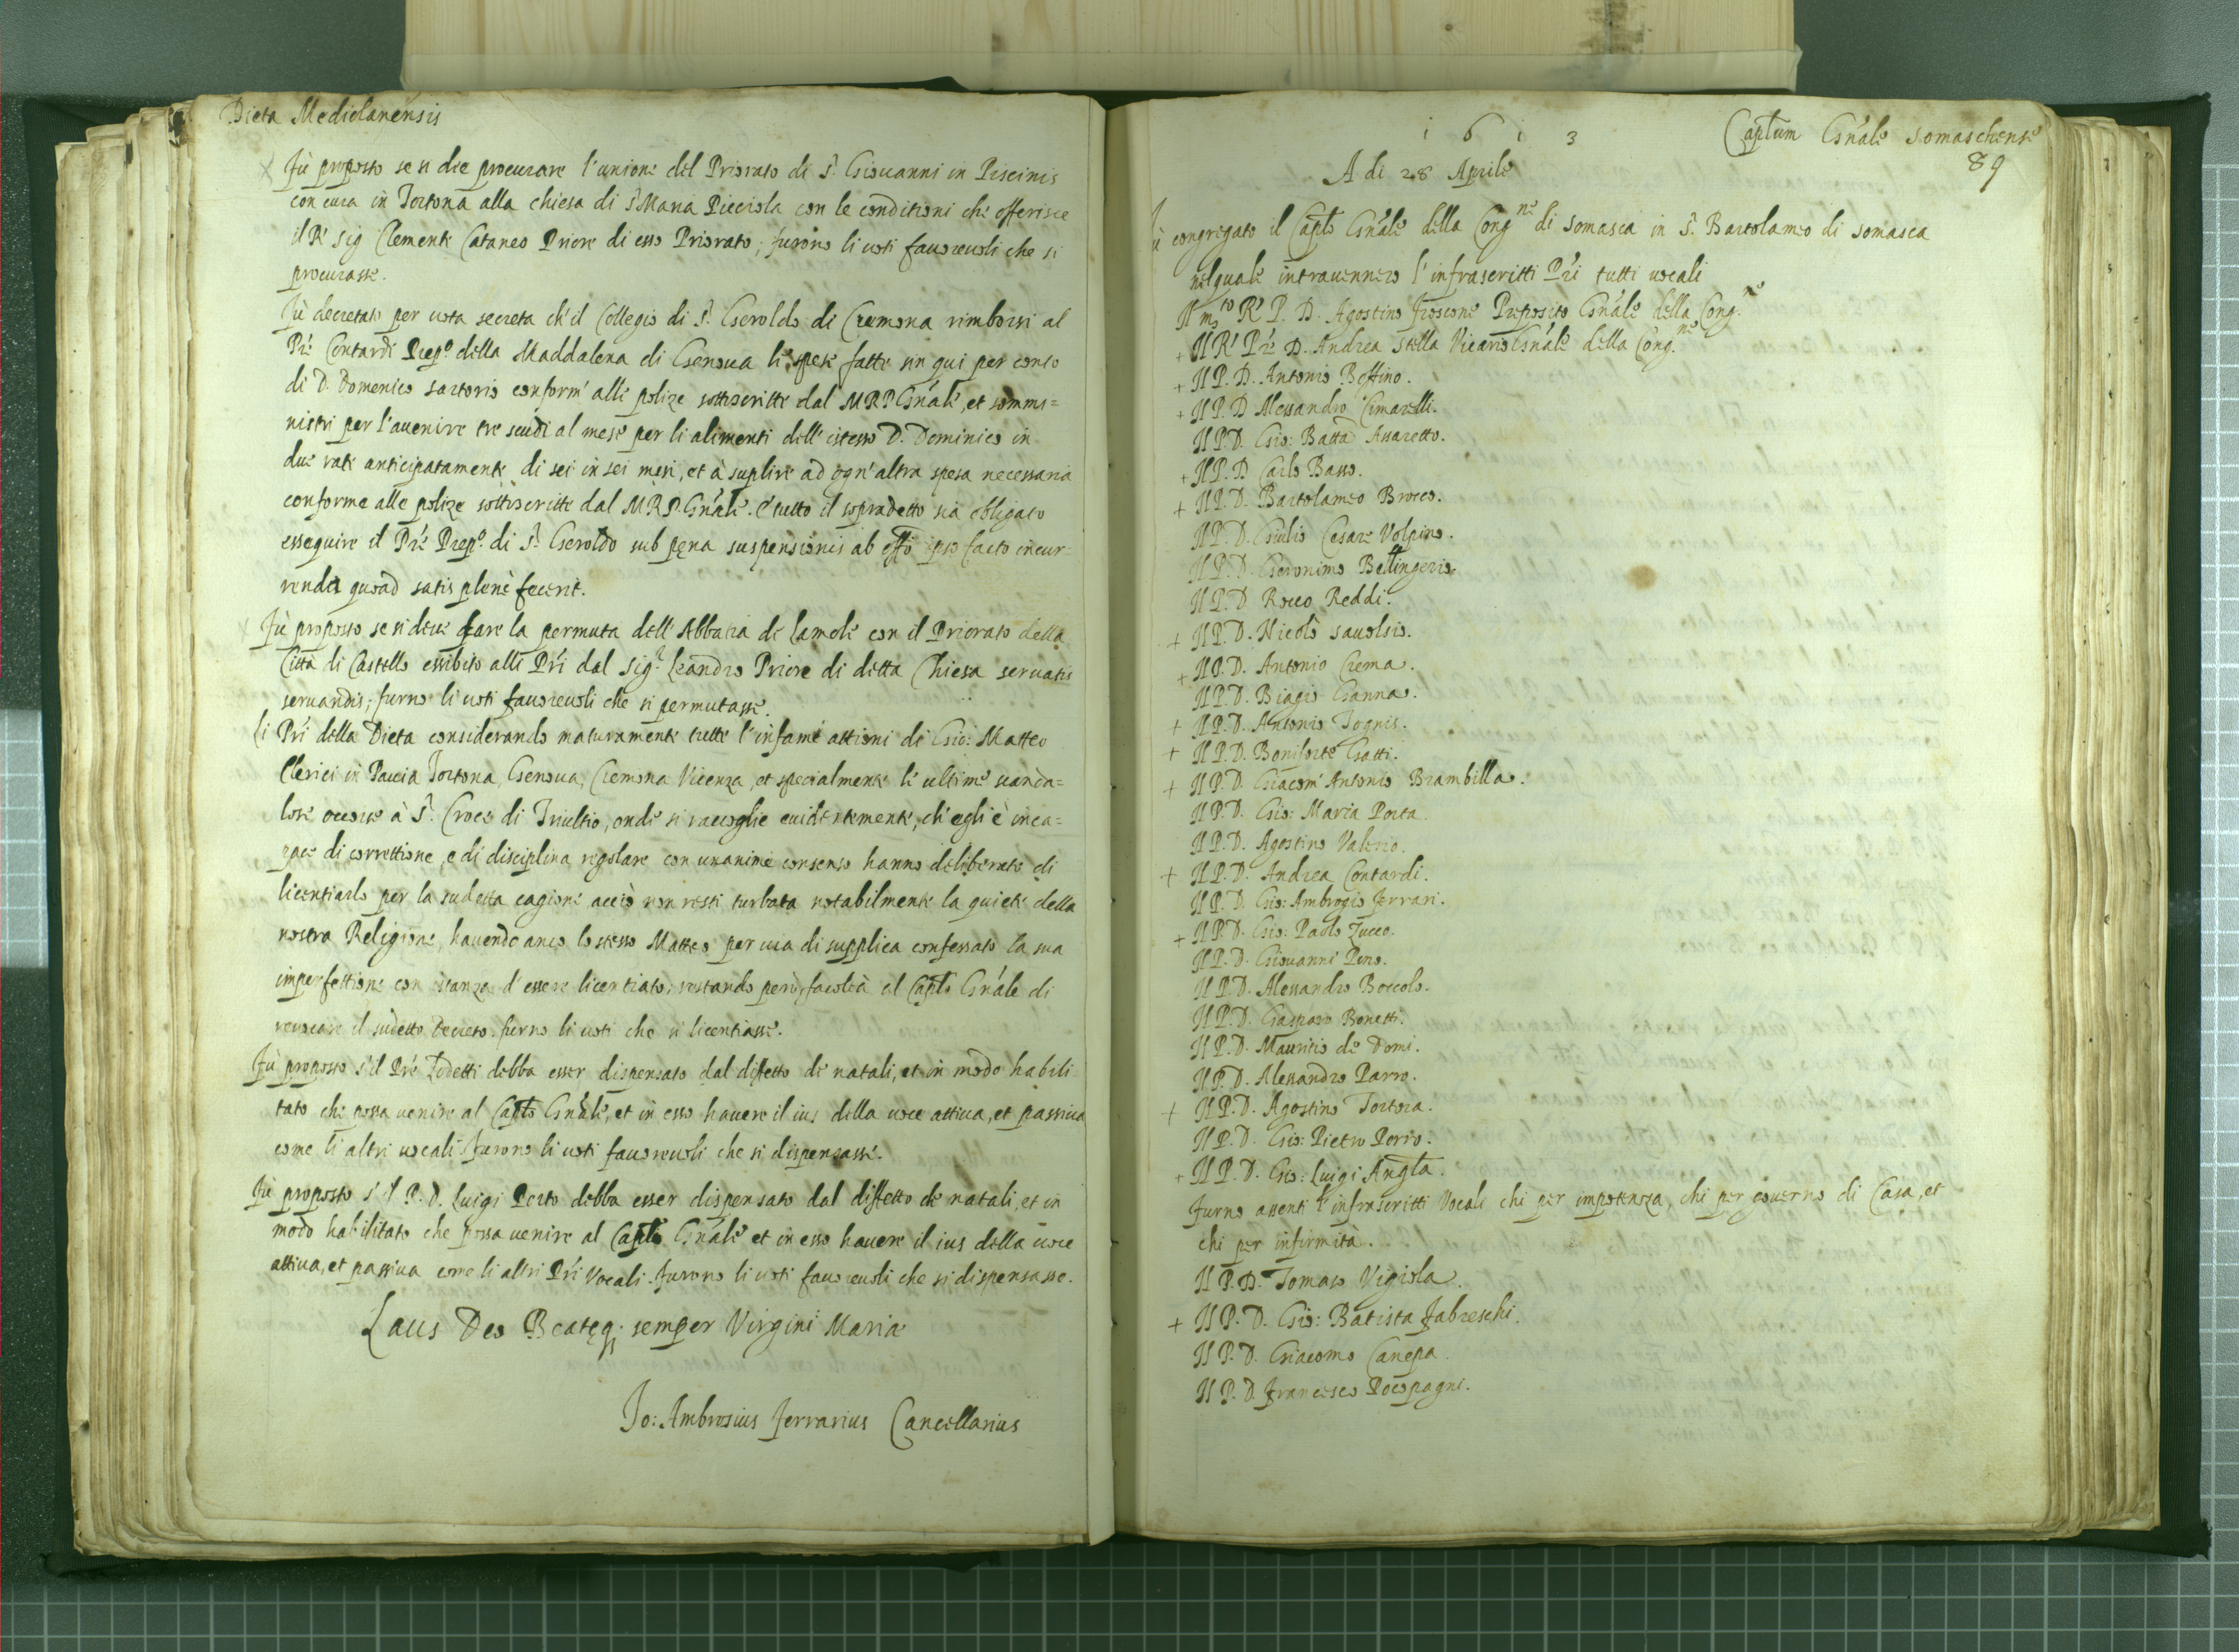 Dieta Mediolanensis
Fù proposto se si dee procurare l'unione del Priorato di S. Giovanni in Piscinis
con cura in Tortona alla chiesa di S. Maria Picciola con le conditioni che offerisce
il R. Sig Clemente Cataneo Priore di esso Priorato; furono li voti favorevoli che si
procurasse.
Fù decretato per vota secreta ch'il Collegio di S. Geroldo di Cremona rimborsi al
Pre Contardi Prepo della Maddalena di Genova le spese fatte sin qui per conto
di D. Domenico Sartorio conform' alle polize sottoscritte dal M R P Gnale, et sommi=
nistri per l'avenire tre scudi al mese per li alimenti dell' istesso D. Dominico in
due rate anticipatamente di sei in sei mesi, et à suplire ad ogn'altra spesa necessaria
conforme alle polize sottoscritte dal M R P Gnale. E tutto il sopradetto sia obligato
esseguire il Pre Prepo di S. Geroldo sub pęna suspensionis ab offo ipso facto incur=
renda quoad satis plenè fecerit.
Fù proposto se si deve fare la permuta dell' Abbatia di Lamole con il Priorato della
Città di Castello essibito alli Pri dal Sigr Leandro Priore di detta Chiesa servatis
servandis; furno li voti favorevoli che si permutasse.
Li Pri della Dieta considerando maturamente tutte l'infame attioni di Gio: Matteo
Clerici in Pavia Tortona, Genova, Cremona Vicenza, et specialmente le ultime scanda=
lose occorse à S. Croce di Triultio, onde si raccoglie evidentemente, ch'egli è inca=
pace di correttione, e di disciplina regolare con unanime consenso hanno deliberato di
licentiarlo per la sudetta cagione acciò non resti turbata notabilmente la quiete della
nostra Religione, havendo anco lo stesso Matteo per via di supplica confessato la sua
imperfettione con istanza d'essere licentiato; restando però facoltà al Caplo Gnale di
revocare il sudetto decreto. furno li voti che si licentiasse.
Fù proposto s'il Pre Zodetti debba esser dispensato dal diffetto de natali, et in modo habili=
tato che possa venire al Caplo Gnale, et in esso havere il ius della voce attiva, et passiva
come li altri vocali. Furono li voti favorevoli che si dispensasse.
Fù proposto s'il P. D. Luigi Porto debba esser dispensato dal diffetto de natali, et in
modo habilitato che possa venire al Caplo Gnale et in esso havere il ius della voce
attiva, et passiva come li altri Pri Vocali. Furono li voti favorevoli che si dispensasse.
Laus Deo Beatęq; semper Virgini Maria
Io: Ambrosius Ferrarius Cancellarius
Captum Gnale Somaschense
1613
89
A di 28 Aprile
Fù congregato il Caplo Gnale della Congne di Somasca in S. Bartolameo di Somasca
nel quale intravennero l'infrascritti Pri tutti vocali
Il mto Re P. D. Agostino Froscone Preposito Gnale della Congne
+ Il Re Pre D. Andrea Stella Vicario Gnale della Congne
+ Il P. D. Antonio Boffino.
+ Il P. D Alessandro Cimarelli.
Il P. D. Gio: Batta Assaretto.
+ Il P. D Carlo Basso.
+ Il P. D. Bartolameo Brocco.
Il P. D. Giulio Cesare Volpino.
Il P. D. Geronimo Bellingerio.
Il P. D Rocco Reddi.
+ Il P. D. Nicolò Savolsio.
+ Il P. D. Antonio Crema.
Il P. D. Biagio Ganna.
+ Il P. D. Antonio Tognis.
+ Il P. D. Boniforte Gatti.
+ Il P. D. Giacom' Antonio Brambilla.
Il P. D. Gio: Maria Porta.
Il P. D. Agostino Valerio.
+ Il P. D. Andrea Contardi.
Il P. D. Gio: Ambrogio Ferrari.
+ Il P. D. Gio: Paolo Zucco.
Il P. D. Giovanni Peno.
Il P. D. Alessandro Boccolo.
Il P. D. Gasparo Bonetti.
Il P. D. Mauritio de Domi.
Il P. D. Alessandro Parro.
+ Il P. D. Agostino Tortora.
Il P. D. Gio: Pietro Porro.
+ Il P. D. Gio: Luigi Angta.
Furno assenti l'infrascritti Vocali chi per impotenza, chi per governo di Casa, et
chi per infirmità.
Il P. D. Tomaso Vigiola.
+ Il P. D. Gio: Batista Fabreschi.
Il P. D. Giacomo Canepa.
Il P. D. Francesco Pocopagni.